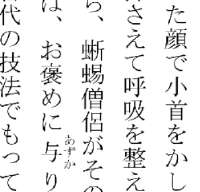 た顔で小首をかし
さえて呼吸を整え
ら、蜥蜴僧侶がその
は、お褒めに与り
代の技法でもって